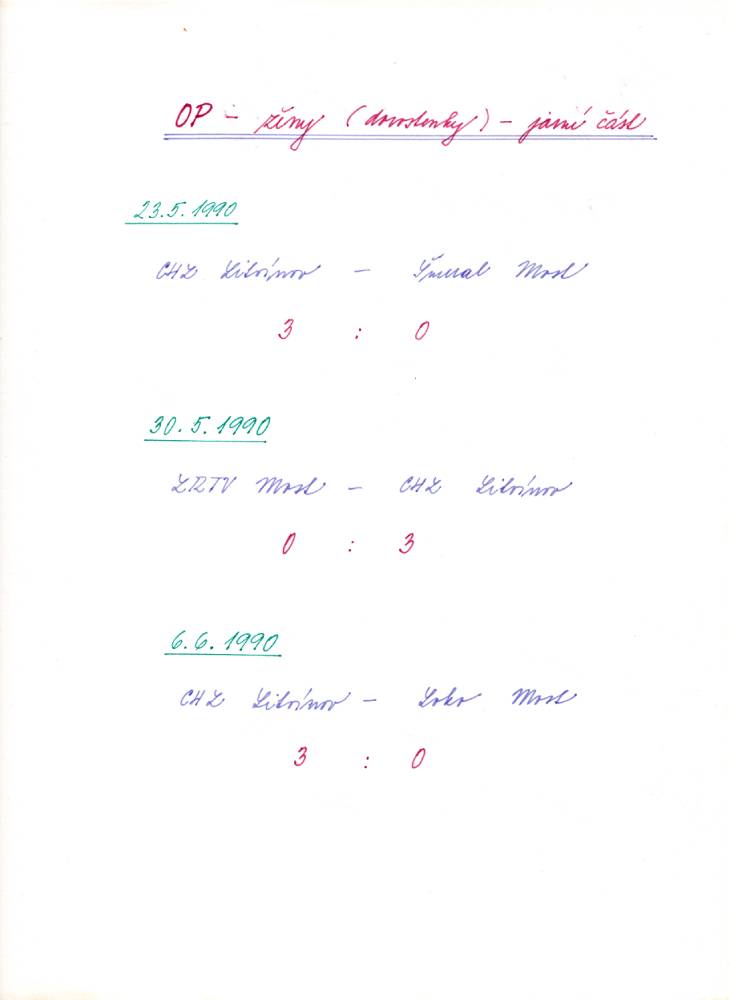 OP - ženy (dorostenky) - jarní část
23.5.1990
CHZ Litvínov - Šmeral Most
3 : 0
30.5.1990
ZRTV Most - CHZ Litvínov
0 : 3
6.6.1990
CHZ Litvínov - Loko Most
3 : 0